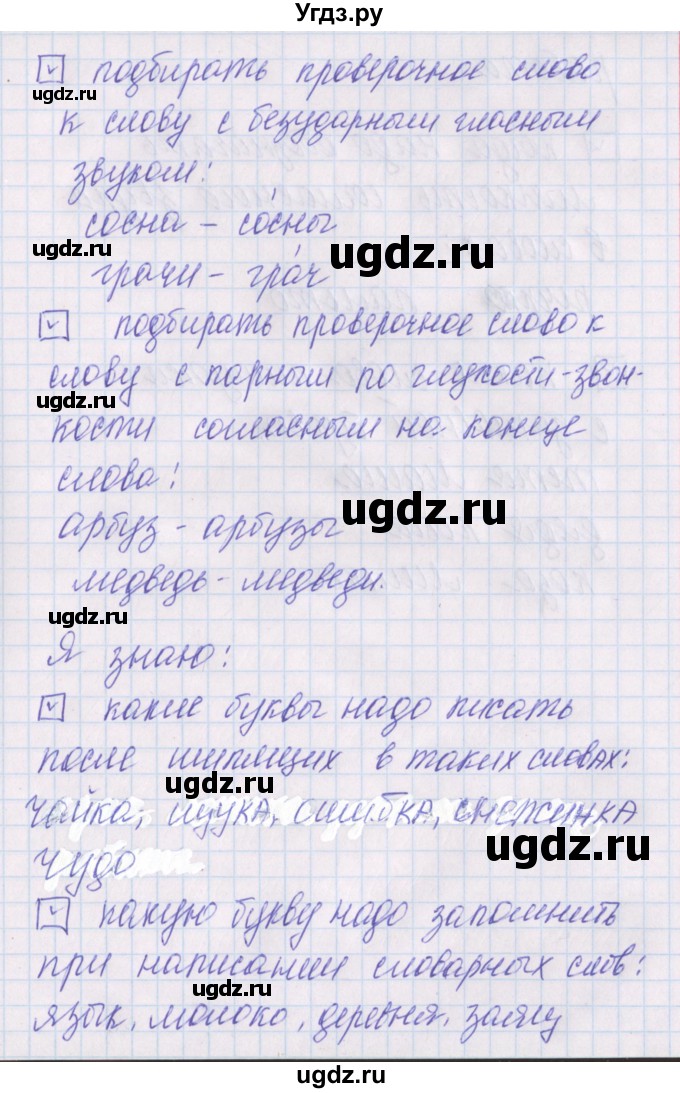 Угдз.ру
☑ подбирать проверочное слово
ugdz.ru
к слову с безударным гласным
звуком:
сосна – со́сны
ugdz.ru
ugdz.ru
грачи – гра́ч
☑ подбирать проверочное слово к
слову с парным по глухости-звон-
ugdz.ru
кости согласным на конце
слова:
арбуз – арбузы
ugdz.ru
медведь – медведи.
ugdz.ru
Я знаю:
☑ какие буквы надо писать
после шипящих в таких словах:
ugdz.ru
чайка, щука, ошибка, снежинка
чудо
ugdz.ru
☑ какую букву надо запомнить
при написании словарных слов:
ugdz.ru
язык, молоко, деревня, заяц
ugdz.ru